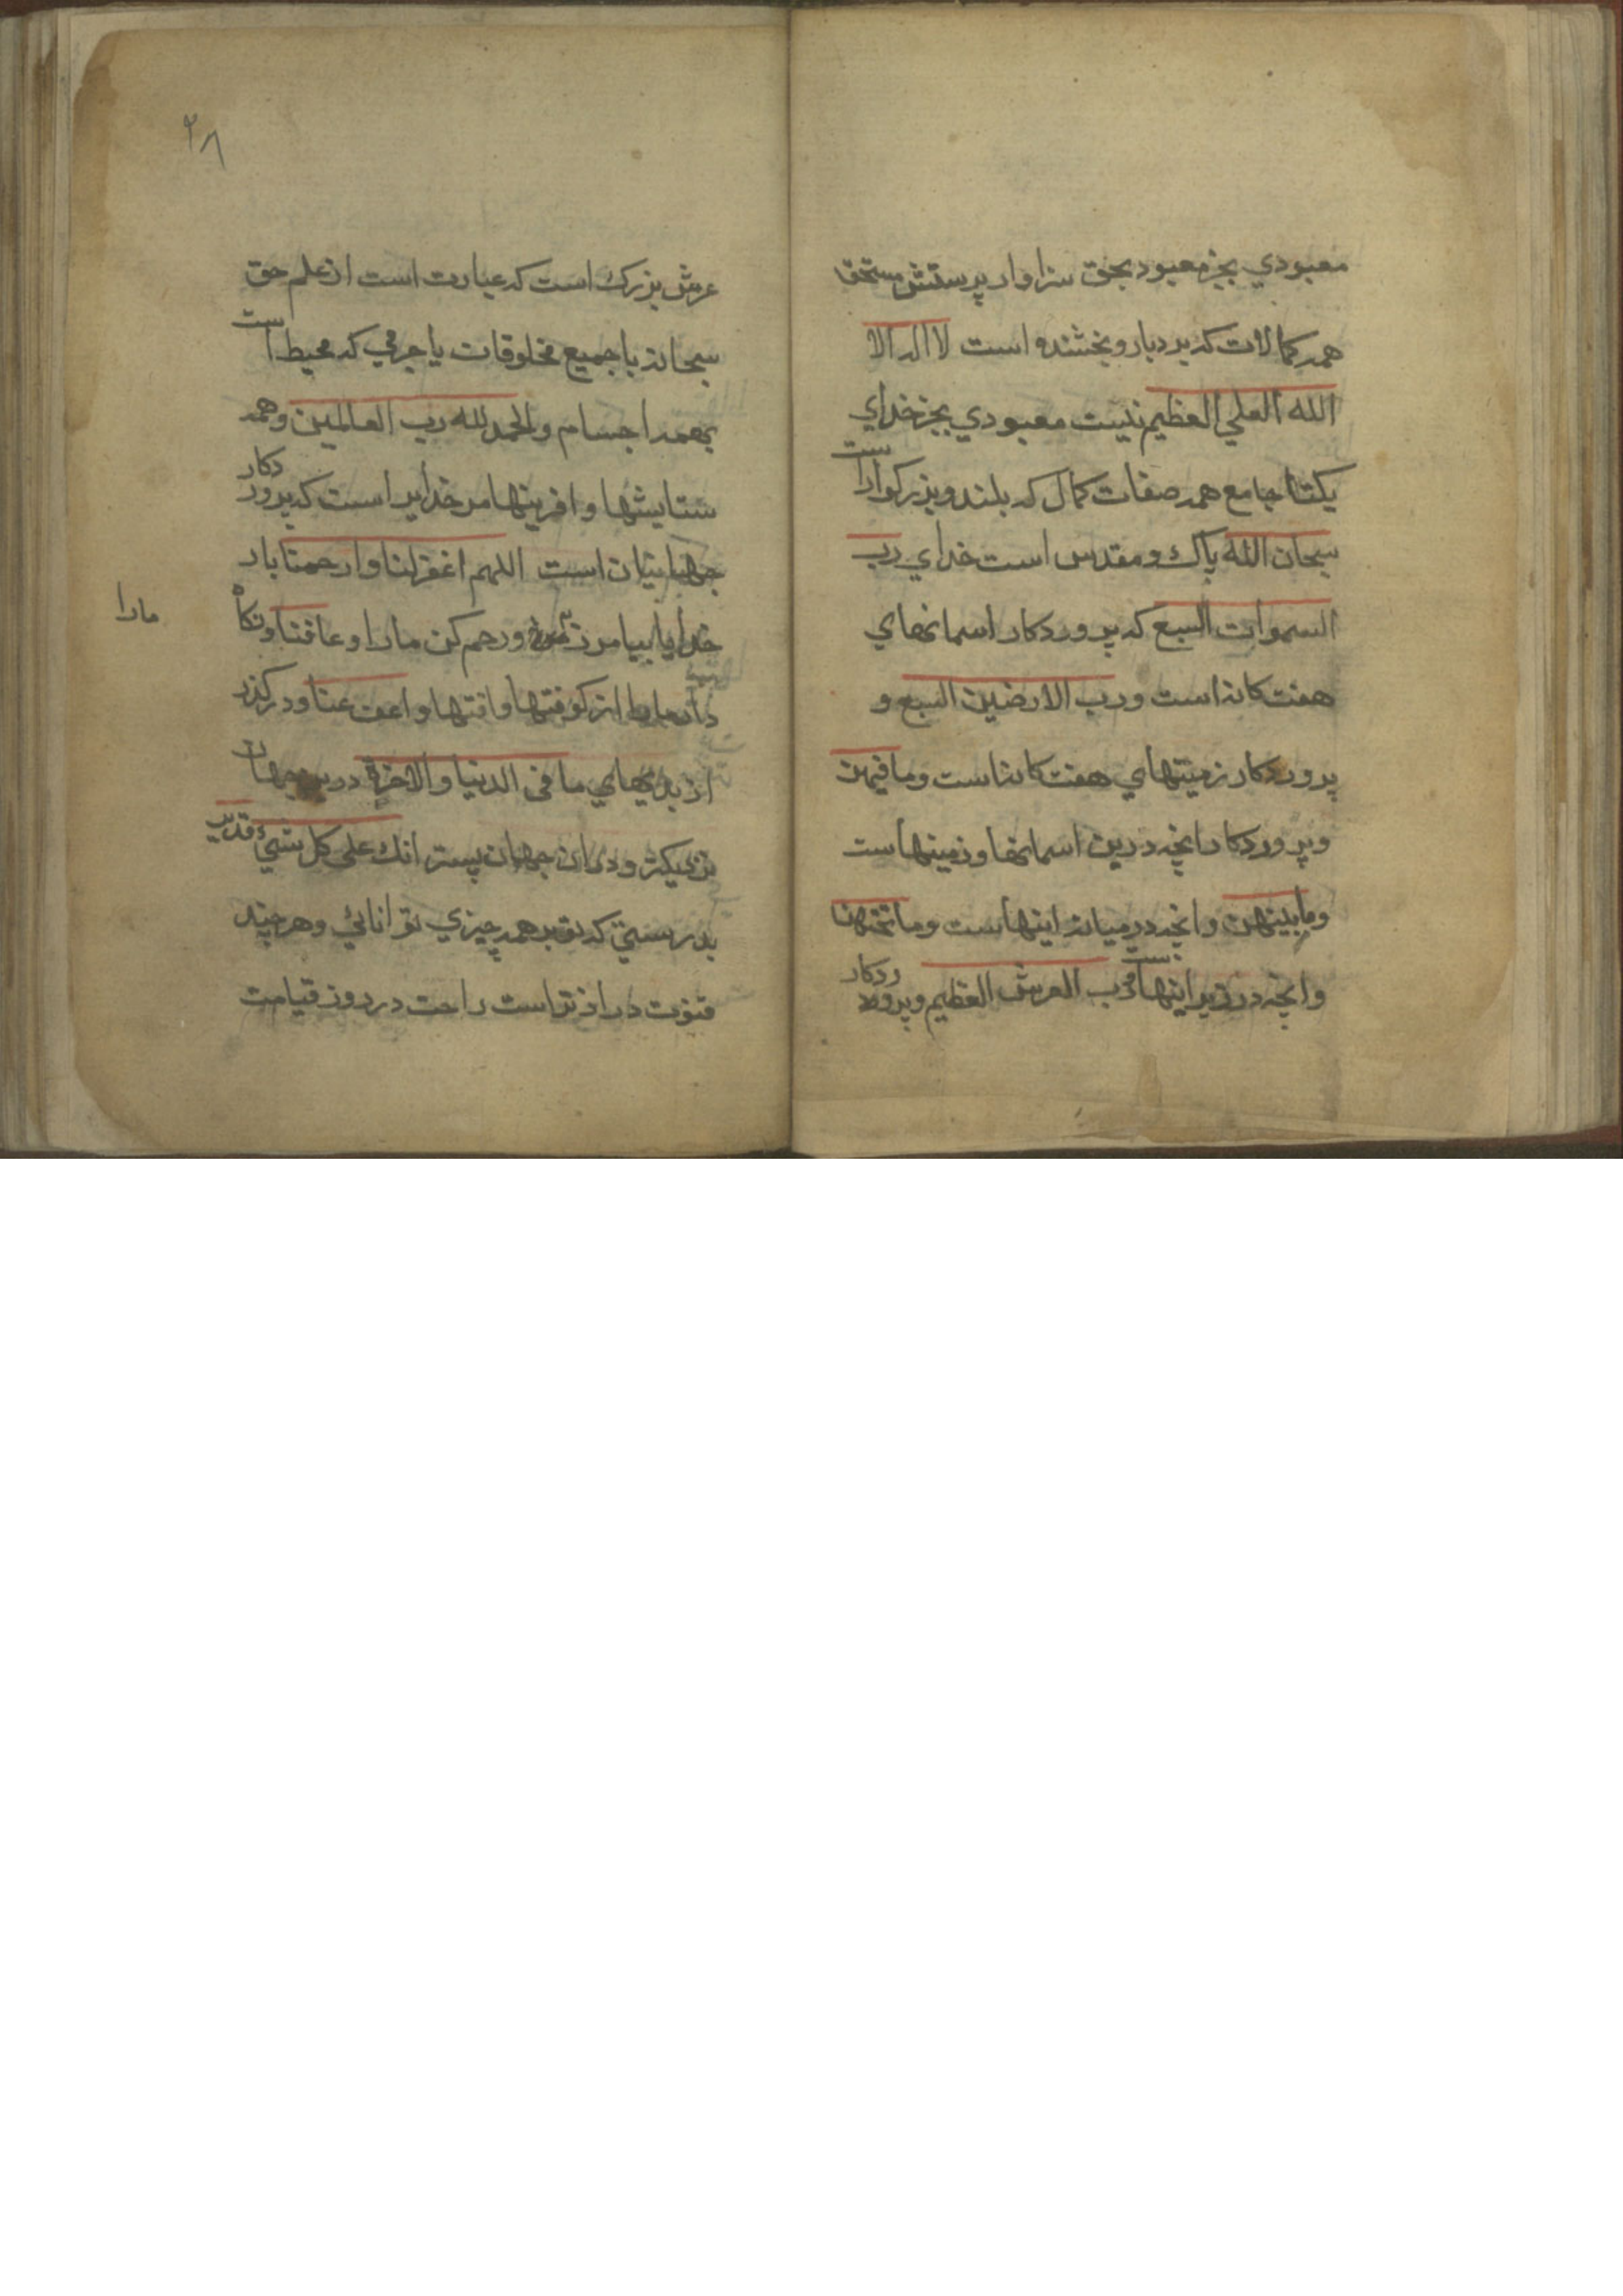 معبودي بجز معبود بحق سزاوار پرستش مستحق
همه کمالات که بردبار و بخشنده است لا اله الا
الله العلي العظيم نیست معبودي بجز خداي
یکتا جامع همه صفات کمال که بلند و بزرکوارا ست
سبحان الله پاک و مقدس است خداي رب
السموات السبع که پروردکار اسمانهاي
هفت کانه است ورب الارضین السبع و
پروردکار زمینهاي هفت کانه است وما فیهن
وپروردکار انچه درین اسمانها و زمینهاست
وما بینهن وانچه درمیانه اینهاست وما تحتهن
وانچه در زیر اینهاست ورب العرش العظیم وپروردکار
۲۸
عرش بزرک است که عبارت است از علم حق
سبحانه با جمیع مخلوقات یا جرمي که محیط است
بهمه اجسام والحمد لله رب العالمین وهمه
ستایشها و افرینها مر خدایرا است که پروردکار
جهانیان است اللهم اغفر لنا وارحمنا بار
خدایا بیامرز ورحم کن مارا وعافنا ونکاه
مارا
دار از کوفتها و افتها واعف عنا ودرکذر
از بدیهاي ما فی الدنیا والاخرة درین جهان
نزدیکتر و در ان جهان پستر انک علی کل شيء قدیر
بدرستي که تو بر همه چیزي توانائي وهرچند
قنوت دراز تر است راحت در روز قیامت